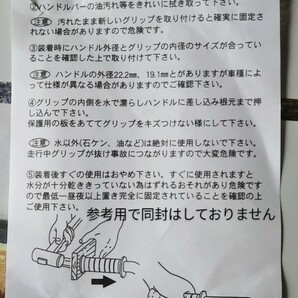 ②ハンドルバーの油汚れ等をきれいに拭き取って下さい。
注意 汚れたまま新しいグリップを取り付けると確実に固定さ
れない場合がありますので危険です。
③装着時にハンドル外径とグリップの内径のサイズが合ってい
ることを確認した上でご使用下さい。
注意 ハンドルの外径22.2mm、19.1mmとがありますが車種によ
って仕様が異なる場合がありますのでご確認下さい。
④グリップの内側を水で濡らしハンドルに差し込み根元まで押
し込んで下さい。
保護用の板をあててグリップをキズつけない様にして下さい。
注意 水以外(石ケン、油など)は絶対に使用しないで下さい。
走行中グリップが抜け事故につながりますので大変危険です。
⑤装着後すぐの使用はおやめ下さい。すぐに使用されますと
水分が十分乾ききっていない為はずれるおそれがあり危険です
ので最低一昼夜以上置き完全に固定されていることを確認の上
ご使用下さい。
参考用で同封はしておりません